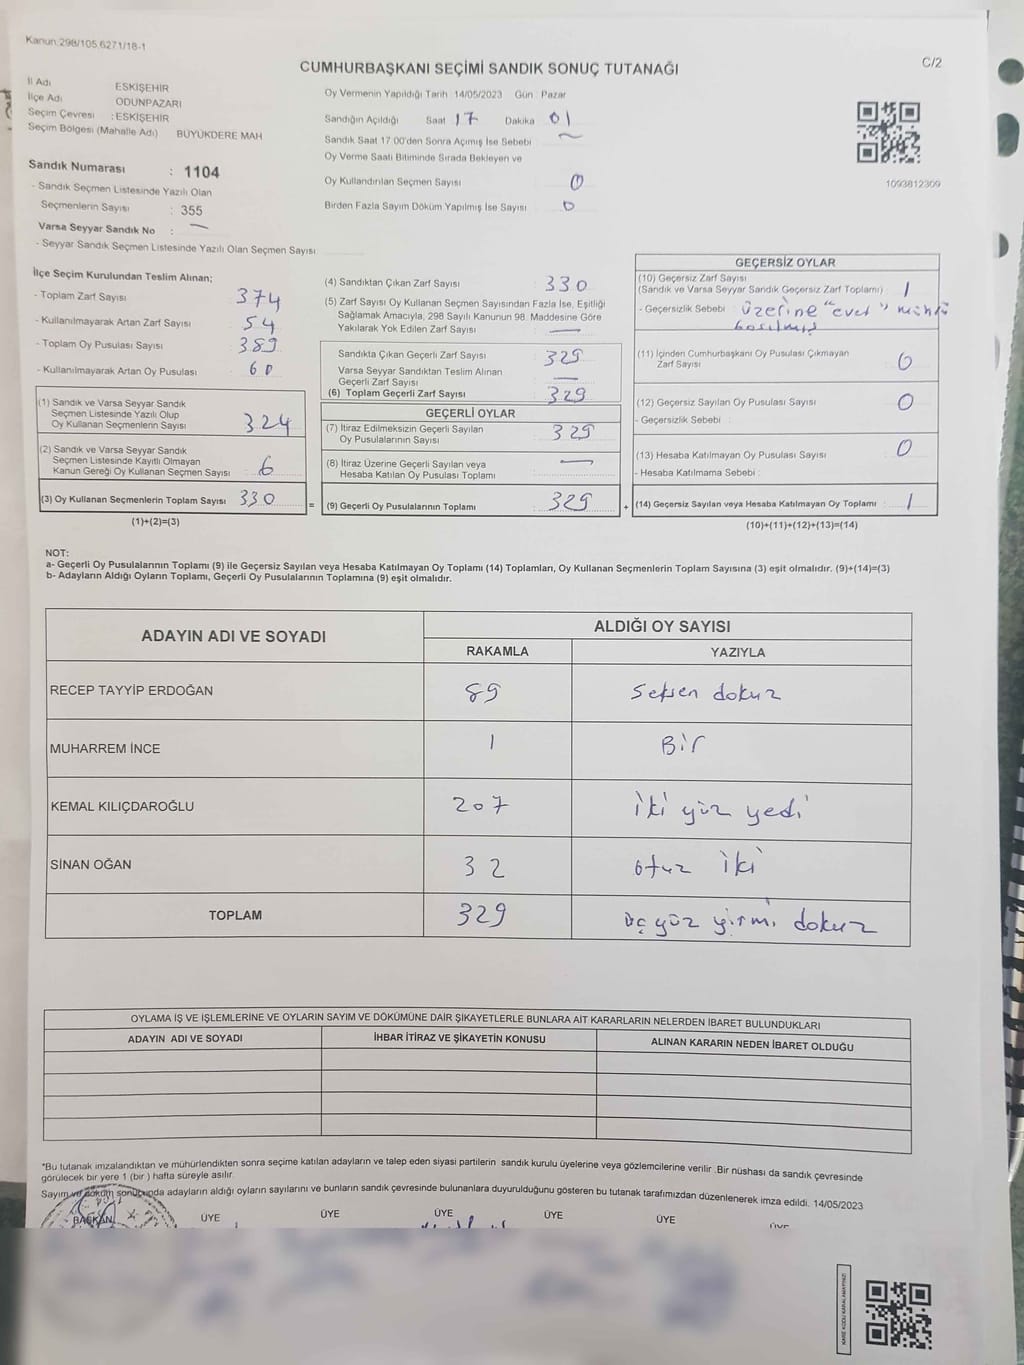 Kanun.298/105,6271/18-1
C/2
CUMHURBAŞKANI SEÇİMİ SANDIK SONUÇ TUTANAĞI
İl Adı ESKİŞEHİR
İlçe Adı ODUNPAZARI
Seçim Çevresi : ESKİŞEHİR
Seçim Bölgesi (Mahalle Adı) BÜYÜKDERE MAH
Sandık Numarası : 1104
- Sandık Seçmen Listesinde Yazılı Olan
Seçmenlerin Sayısı : 355
Varsa Seyyar Sandık No : —
- Seyyar Sandık Seçmen Listesinde Yazılı Olan Seçmen Sayısı
Oy Vermenin Yapıldığı Tarih :14/05/2023 Gün : Pazar
Sandığın Açıldığı Saat 17 Dakika 01
Sandık Saat 17:00'den Sonra Açımış İse Sebebi ~
Oy Verme Saati Bitiminde Sırada Bekleyen ve
Oy Kullandırılan Seçmen Sayısı 0
Birden Fazla Sayım Döküm Yapılmış İse Sayısı 0
1093812309
İlçe Seçim Kurulundan Teslim Alınan;
- Toplam Zarf Sayısı 374
- Kullanılmayarak Artan Zarf Sayısı 54
- Toplam Oy Pusulası Sayısı 389
- Kullanılmayarak Artan Oy Pusulası 60
(1) Sandık ve Varsa Seyyar Sandık
Seçmen Listesinde Yazılı Olup
Oy Kullanan Seçmenlerin Sayısı 324
(2) Sandık ve Varsa Seyyar Sandık
Seçmen Listesinde Kayıtlı Olmayan
Kanun Gereği Oy Kullanan Seçmen Sayısı 6
(3) Oy Kullanan Seçmenlerin Toplam Sayısı 330 =
(1)+(2)=(3)
(4) Sandıktan Çıkan Zarf Sayısı 330
(5) Zarf Sayısı Oy Kullanan Seçmen Sayısından Fazla İse, Eşitliği
Sağlamak Amacıyla, 298 Sayılı Kanunun 98. Maddesine Göre
Yakılarak Yok Edilen Zarf Sayısı —
Sandıkta Çıkan Geçerli Zarf Sayısı 329
Varsa Seyyar Sandıktan Teslim Alınan
Geçerli Zarf Sayısı —
(6) Toplam Geçerli Zarf Sayısı 329
GEÇERLİ OYLAR
(7) İtiraz Edilmeksizin Geçerli Sayılan
Oy Pusulalarının Sayısı 329
(8) İtiraz Üzerine Geçerli Sayılan veya
Hesaba Katılan Oy Pusulası Toplamı —
(9) Geçerli Oy Pusulalarının Toplamı 329 +
GEÇERSİZ OYLAR
(10) Geçersiz Zarf Sayısı
(Sandık ve Varsa Seyyar Sandık Geçersiz Zarf Toplamı) 1
- Geçersizlik Sebebi : üzerine "evet" mührü
basılmış
(11) İçinden Cumhurbaşkanı Oy Pusulası Çıkmayan
Zarf Sayısı 0
(12) Geçersiz Sayılan Oy Pusulası Sayısı 0
- Geçersizlik Sebebi :
(13) Hesaba Katılmayan Oy Pusulası Sayısı 0
- Hesaba Katılmama Sebebi :
(14) Geçersiz Sayılan veya Hesaba Katılmayan Oy Toplamı : 1
(10)+(11)+(12)+(13)=(14)
NOT:
a- Geçerli Oy Pusulalarının Toplamı (9) ile Geçersiz Sayılan veya Hesaba Katılmayan Oy Toplamı (14) Toplamları, Oy Kullanan Seçmenlerin Toplam Sayısına (3) eşit olmalıdır. (9)+(14)=(3)
b- Adayların Aldığı Oyların Toplamı, Geçerli Oy Pusulalarının Toplamına (9) eşit olmalıdır.
ADAYIN ADI VE SOYADI ALDIĞI OY SAYISI
RAKAMLA YAZIYLA
RECEP TAYYİP ERDOĞAN 89 seksen dokuz
MUHARREM İNCE 1 Bir
KEMAL KILIÇDAROĞLU 207 iki yüz yedi
SİNAN OĞAN 32 otuz iki
TOPLAM 329 üç yüz yirmi dokuz
OYLAMA İŞ VE İŞLEMLERİNE VE OYLARIN SAYIM VE DÖKÜMÜNE DAİR ŞİKAYETLERLE BUNLARA AİT KARARLARIN NELERDEN İBARET BULUNDUKLARI
ADAYIN ADI VE SOYADI İHBAR İTİRAZ VE ŞİKAYETİN KONUSU ALINAN KARARIN NEDEN İBARET OLDUĞU
*Bu tutanak imzalandıktan ve mühürlendikten sonra seçime katılan adayların ve talep eden siyasi partilerin sandık kurulu üyelerine veya gözlemcilerine verilir .Bir nüshası da sandık çevresinde
görülecek bir yere 1 (bir ) hafta süreyle asılır.
Sayım ve döküm sonucunda adayların aldığı oyların sayılarını ve bunların sandık çevresinde bulunanlara duyurulduğunu gösteren bu tutanak tarafımızdan düzenlenerek imza edildi. 14/05/2023
BAŞKAN ÜYE ÜYE ÜYE ÜYE ÜYE ÜYE